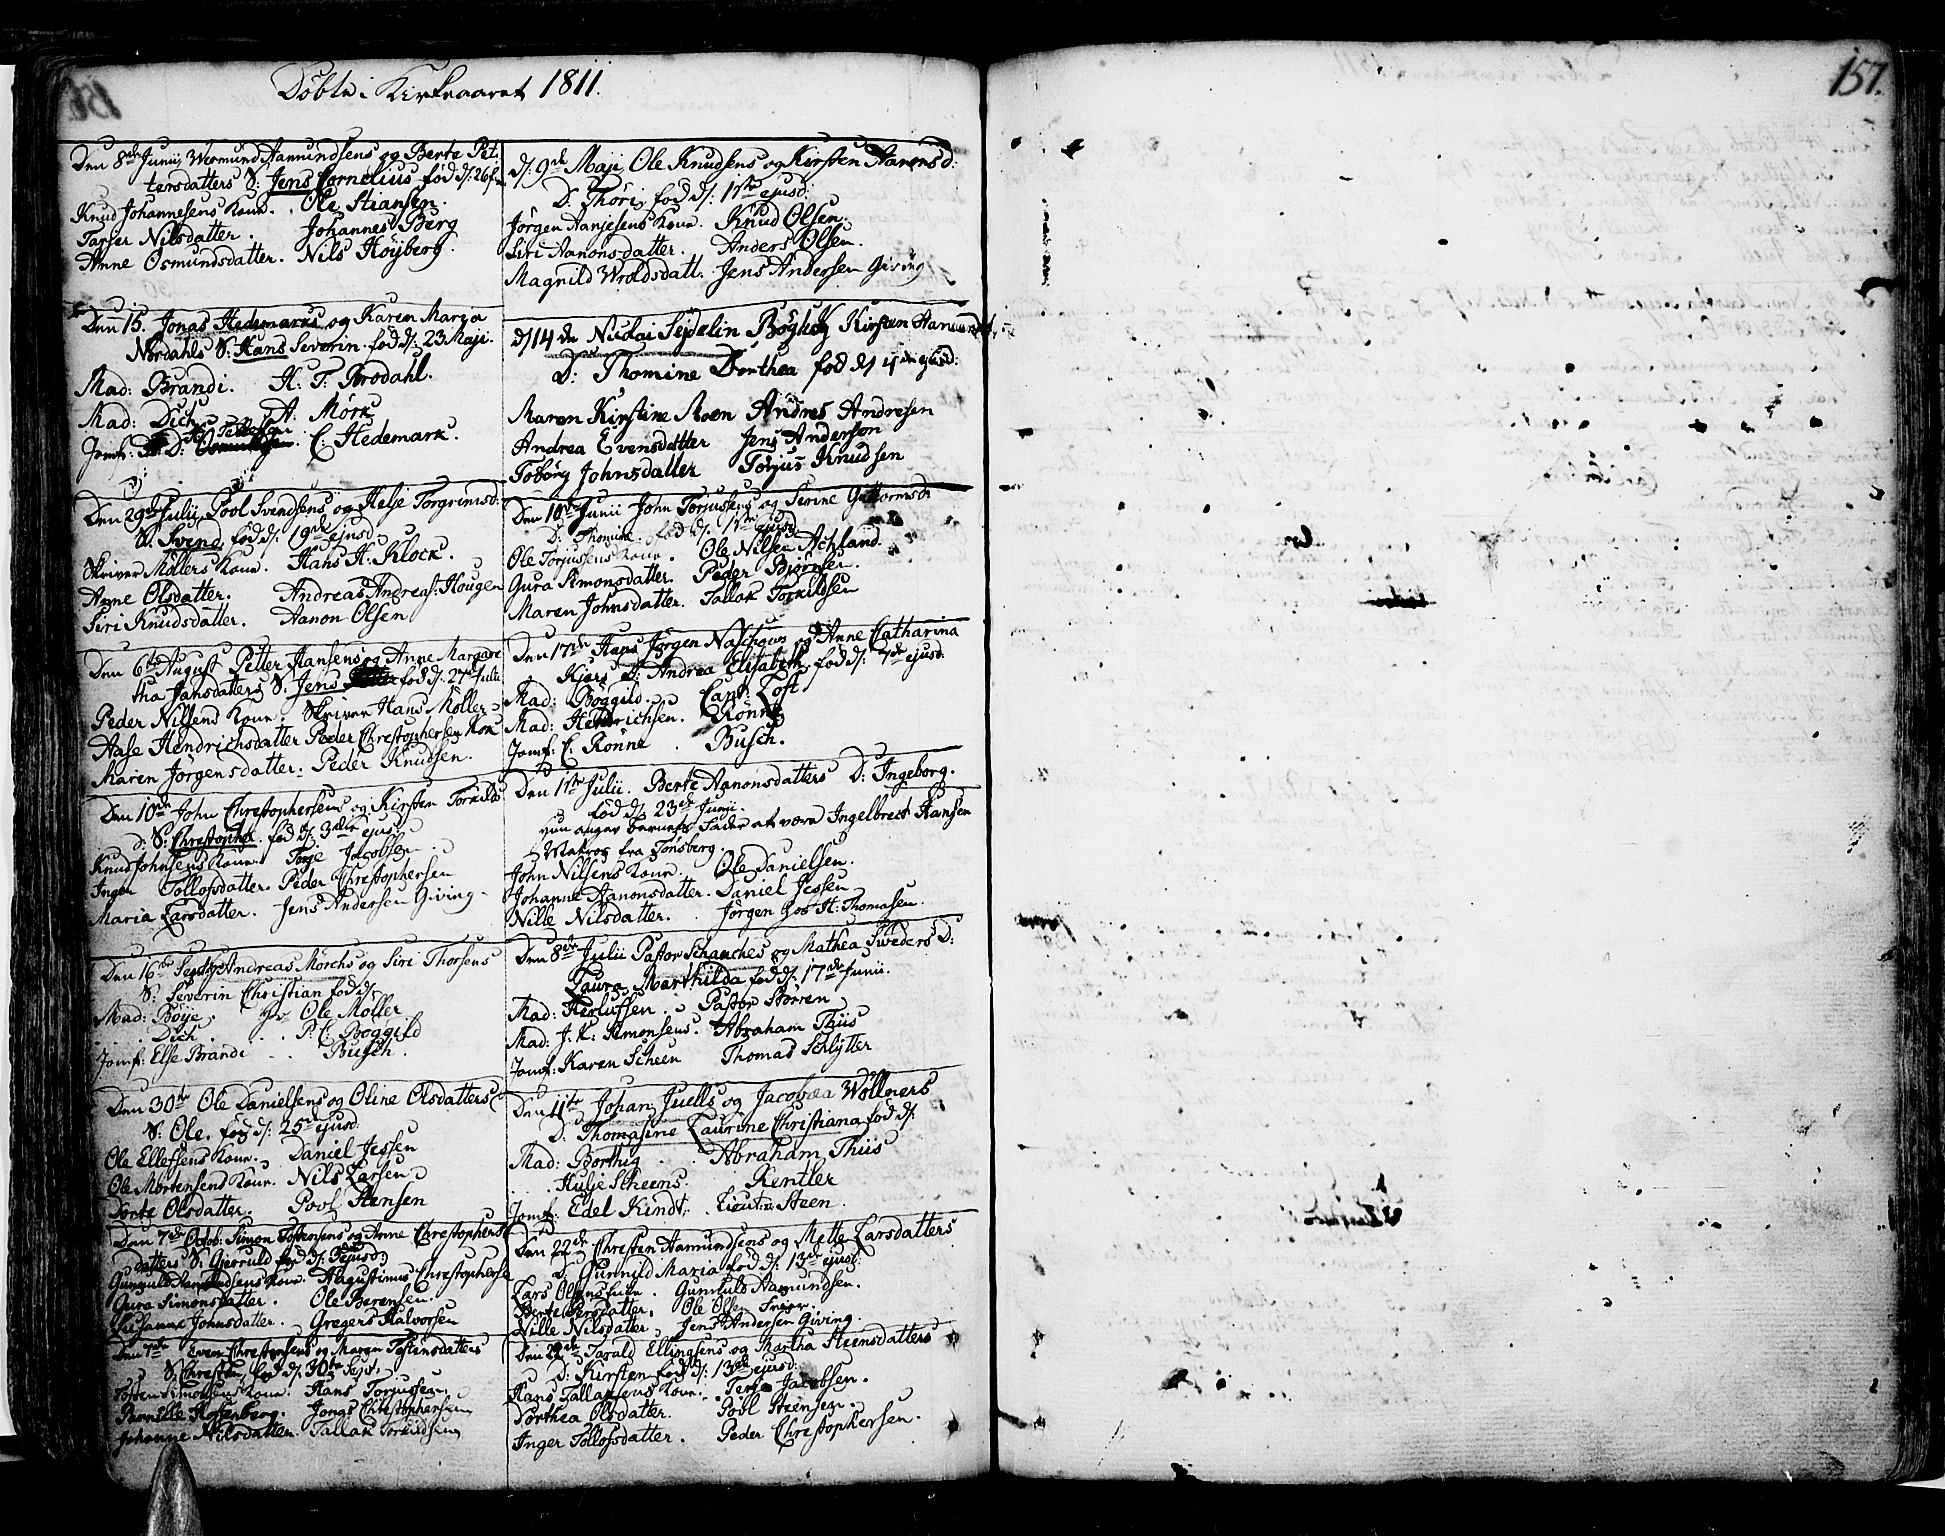 Döbte i Kirkeaaret 1811.
157.
Den 8de Junii, Wermund Aamundsens og Berte Pet-
tersdatters S: Jens Cornelius fød d: 26
Knud Johannesens Kone. Ole Stiansen.
Nilsdatter. Johannes Berg
Anne Osmundsdatter. Nils Höyberg.
Den 15. Jonas Hedemarks og Karen Maria
Nordahls S: Hans Severin fød d: 23 Maji.
Mad: Brandi. H. T. Brodahl.
Mad: Dich A. Mörk
Jomf: D: C: Hedemark.
Den 29de Julii Povl Svendsens og Helje Torgrimsd:
S. Svend, fød d: 19de ejusd:
Skriver Möllers Kone. Hans H. Klock.
Anne Olsdatter. Andreas Andreas: Hougen
Siri Knudsdatter. Aanon Olsen
Den 6te August Petter Hansens og Anne Margare
tha Jansdatters S. Jens fød d: 27de Julii
Peder Nilsens Kone. Skriver Hans Möller
Aase Hendrichsdatter Peder Christophersen Kok
Maren Jörgensdatter. Peder Knudsen.
Den 10de John Christophersens og Kirsten Torkilds
d: S: Christopher. fød d: 3die ejusd
Knud Johnsens Kone. Terje Jacobsen
Inger Tollofsdatter. Peder Christophersen
Maria Larsdatter. Jens Andersen Giving
Den 16de Septr Andreas Mörchs og Siri Thorsens
S: Severin Christian fød d:
Mad: Böye. Hr Ole Möller
Dich. P. C. Böggild
Jomf: Else Brandi Busch.
Den 30te Ole Danielsens og Oline Olsdatters
S: Ole, fød d: 25de ejusd.
Ole Ellefsens Kone. Daniel Jessen
Ole Mortensens Kone. Nils Larsen
Dorte Olsdatter. Povl Stensen
Den 7de Octob: Simon Tostensens og Anne Christophers
datters S: Gjeruld fød d: ejusd:
Gunnuld Aamundsens Kone. Augustinus Christophersen
Gura Simonsdatter. Ole Berensen.
Susanne Johnsdatter. Gregers Halvorsen
Den 7de Even Christensens og Maren Tostensdatters
S: Christen, fød d: 30te Sept.
Torsten Simonsens Kone. Hans Torjussen
Pernille Hosenberg. Jonas Christophersen
Johanne Nilsdatter. Tallak Torkildsen
d: 9de Maji Ole Knudsens og Kirsten Aanensd:
D: Thöri, fød d: 1ste ejusd:
Jörgen Aanjesens Kone. Knud Olsen.
Siri Aanonsdatter. Anders Olsen.
Magnild Wroldsdatt. Jens Andersen Giving
d: 14de Nicolai Sejdelin Böghs og Kirsten Aamunds
D: Thomine Dorthea fød d: ejusd:
Maren Kirstine Roen Andres Andresen
Andrea Evensdatter Jens Anderson
Toborg Johnsdatter Torjus Knudsen
Den 10de Junii John Torjussens og Serine Guttormsd:
D: Thomine. fød d: 1ste ejusd:
Ole Torjussens Kone. Ole Nilsen Achland.
Gura Simonsdatter. Peder Björnsen.
Maren Johnsdatter. Tallak Torkildsen
Den 17de Hans Jörgen Naschous og Anne Catharina
Kjærs D: Andrea Elisabeth, fød d: 7de ejusd:
Mad: Böggild. Capt: Loft
Mad: Hendrichsen. Rönne
Jomf: C. Rönne. Busch.
Den 1ste Julii. Berte Aanonsdatters D: Ingeborg.
fød d: 23de Junii.
Hun angav barnets Fader at være Ingelbrect Hansen
Matros fra Tönsberg.
John Nilsens Kone. Ole Danielsen.
Johanne Aanonsdatter. Daniel Jessen
Nille Nilsdatter. Jörgen hos H: Thomasen.
Den 8de Julii Pastor Schanches og Mathea Sweders D:
Laura Marthilda fød d: 17de Junii.
Mad: Herlufsen. Pastor Börren
Mad: J. K: Simonsens. Abraham Thiis
Jomf: Karen Scheen Thomas Schlytter
Den 11te Johan Juells og Jacobæa Wöllners
D. Thomasine Laurine Christiana fød d:
Mad: Borthig Abraham Thiis
Hulje Scheens. Kentler
Jomf: Edel Kindt. Lieutn: Steen.
Den 22de Christen Aamundsens og Mette Larsdatters
D: Gunnild Maria fød d: 13de ejusd:
Lars Olsens Kone. Gunnuld Aamundsen.
Berte Persdatter. Ole Olsen
Nille Nilsdatter Jens Andersen Giving.
Den 22de Tarald Ellingsens og Martha Steensdatters
D: Kirsten fød d: 13de ejusd:
Hans Tallaksens Kone. Terje Jacobsen.
Dorthea Olsdatter. Povl Steensen.
Inger Tollofsdatter. Peder Christophersen.